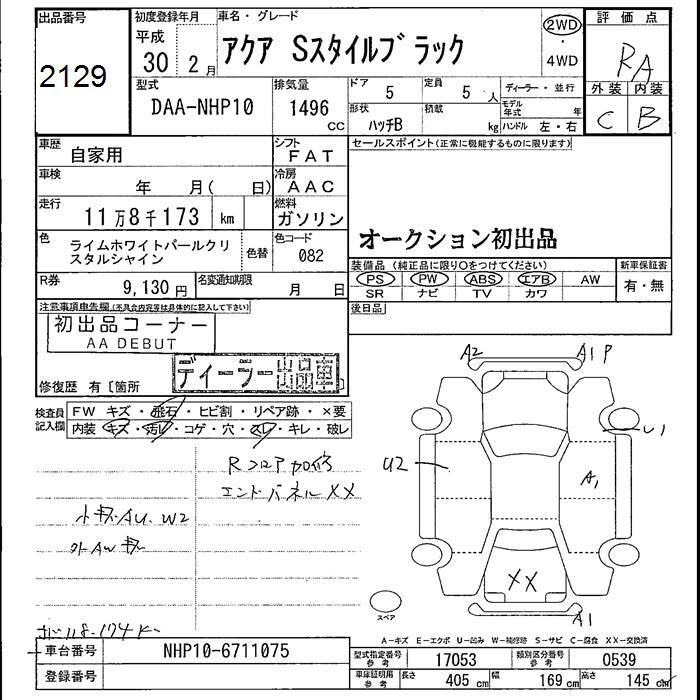 出品番号
2129
初度登録年月
平成
30 2月
車名・グレード
アクア Sスタイルブラック
2WD
・
4WD
評価点
RA
外装 内装
C B
型式
DAA-NHP10
排気量
1496
CC
ドア 5
定員 5人
形状 ハッチB
積載 kg
ディーラー・並行
モデル年式 年
ハンドル 左・右
車歴
自家用
シフト
FAT
車検
年 月( 日)
冷房
AAC
走行
11万8千173 km
燃料
ガソリン
色
ライムホワイトパールクリ
スタルシャイン
色替
色コード
082
R券
9,130円
名変通知期限
月 日
セールスポイント(正常に機能するものに限ります)
オークション初出品
装備品(純正品に限り○をつけてください)
PS PW ABS エアB AW
SR ナビ TV カワ
新車保証書
有・無
後日品
注意事項申告欄(不具合内容等は具体的に記入して下さい)
初出品コーナー
AA DEBUT
ディーラー出品車
修復歴 有〔箇所
検査員
記入欄
FW キズ・飛石・ヒビ割・リペア跡・×要
内装・キズ・汚レ・コゲ・穴・スレ・キレ・破レ
Rフロア加修
エンドパネルXX
小キズAU、W2
外AWキズ
A2
A1 P
U1
U2
A1
XX
A1
スペア
A-キズ E-エクボ U-凹み W-補修跡 S-サビ C-腐食 XX-交換済
車台番号
NHP10-6711075
登録番号
型式指定番号
参考
17053
類別区分番号
参考
0539
車庫証明用
参考
長さ 405cm
幅 169cm
高さ 145cm